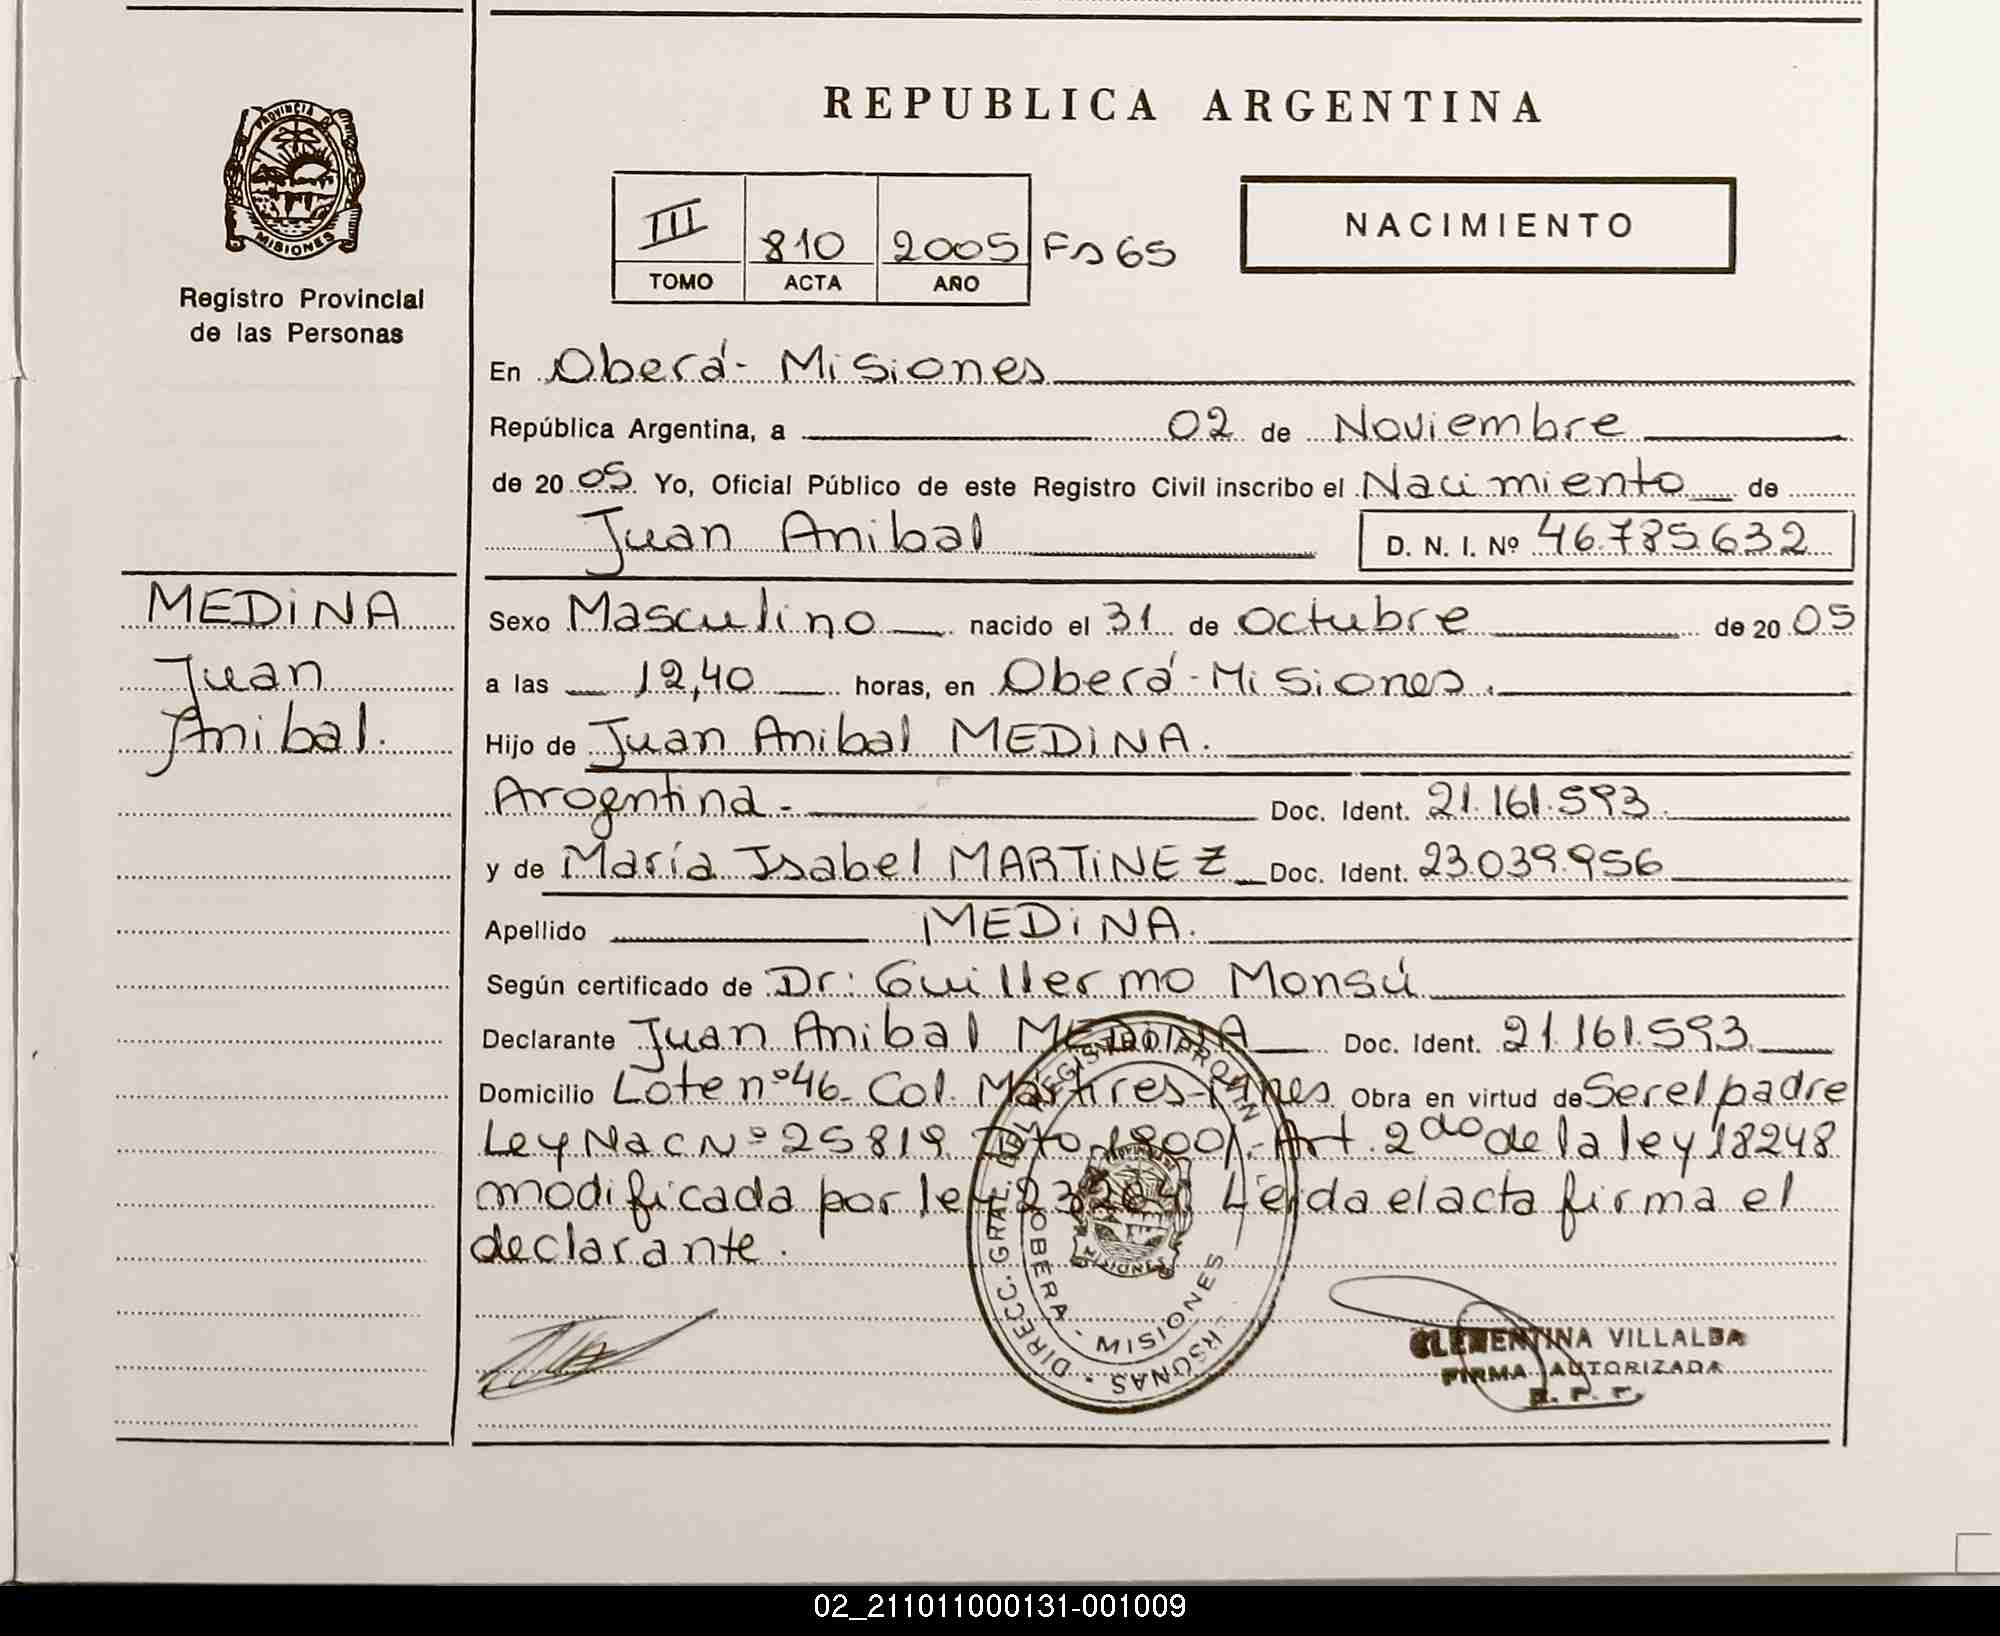 REPUBLICA ARGENTINA
PROVINCIA DE
MISIONES
Registro Provincial
de las Personas
III 810 2005 Fs 65
TOMO ACTA AÑO
NACIMIENTO
En Oberá- Misiones
República Argentina, a 02 de Noviembre
de 2005 Yo, Oficial Público de este Registro Civil inscribo el Nacimiento de
Juan Anibal D. N. I. Nº 46.785.632
MEDINA
Juan
Anibal.
Sexo Masculino nacido el 31 de Octubre de 2005
a las 12,40 horas, en Oberá-Misiones.
Hijo de Juan Anibal MEDINA.
Argentina- Doc. Ident. 21.161.593.
y de María Isabel MARTINEZ Doc. Ident. 23.039.956
Apellido MEDINA.
Según certificado de Dr: Guillermo Monsú
Declarante Juan Anibal MEDINA Doc. Ident. 21.161.593
Domicilio Lote nº46- Col. Mártires-Mnes Obra en virtud de Ser el padre
Ley Nac Nº 25819 Dto 1900/- Art. 2do de la ley 18248
modificada por ley 23264 Leida el acta firma el
declarante.
DIRECC. GRAL. DEL REGISTRO PROVIN
OBERA - MISIONES
MISIONES
CLEMENTINA VILLALBA
FIRMA AUTORIZADA
R. P. P.
02_211011000131-001009